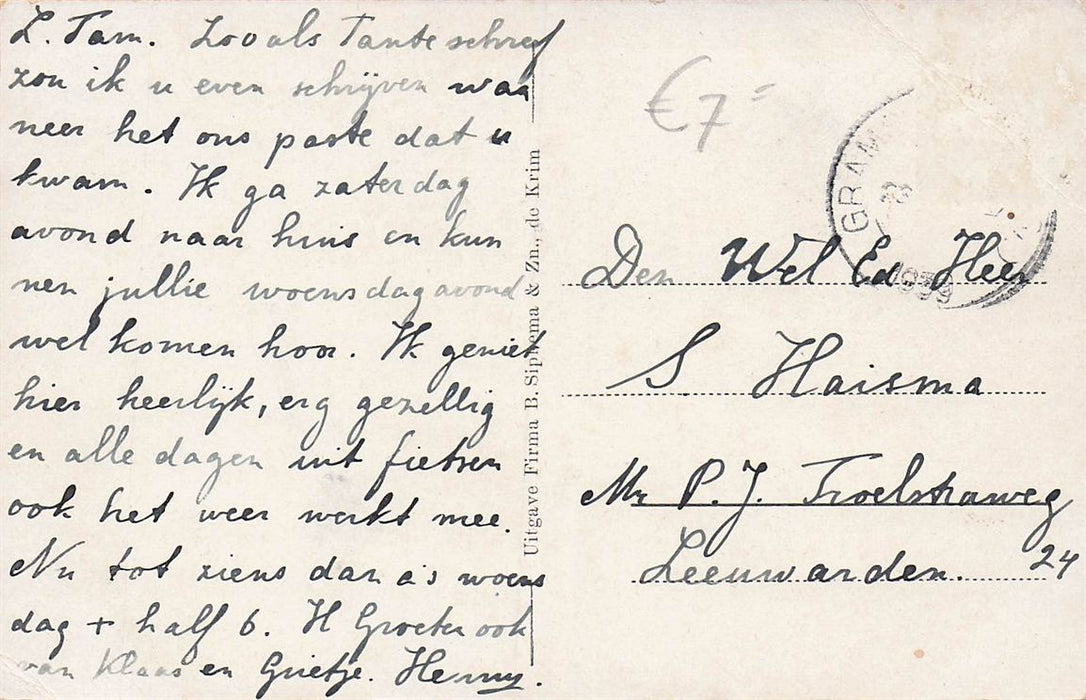 L. Fam. Zooals Tante schref
zou ik u even schrijven wan
neer het ons paste dat u
kwam. Ik ga zaterdag
avond naar huis en kun
nen jullie woensdagavond
wel komen hoor. Ik geniet
hier heerlijk, erg gezellig
en alle dagen uit fietsen
ook het weer werkt mee.
Nu tot ziens dan a's woens
dag + half 6. H Groeten ook
van Klaas en Grietje. Henny.
Uitgave Firma B. Sipkema & Zn., de Krim
€7=
GRAM
23
1939
Den Wel Ed Heer
S. Haisma
Mr P. J. Troelstraweg
24
Leeuwarden.